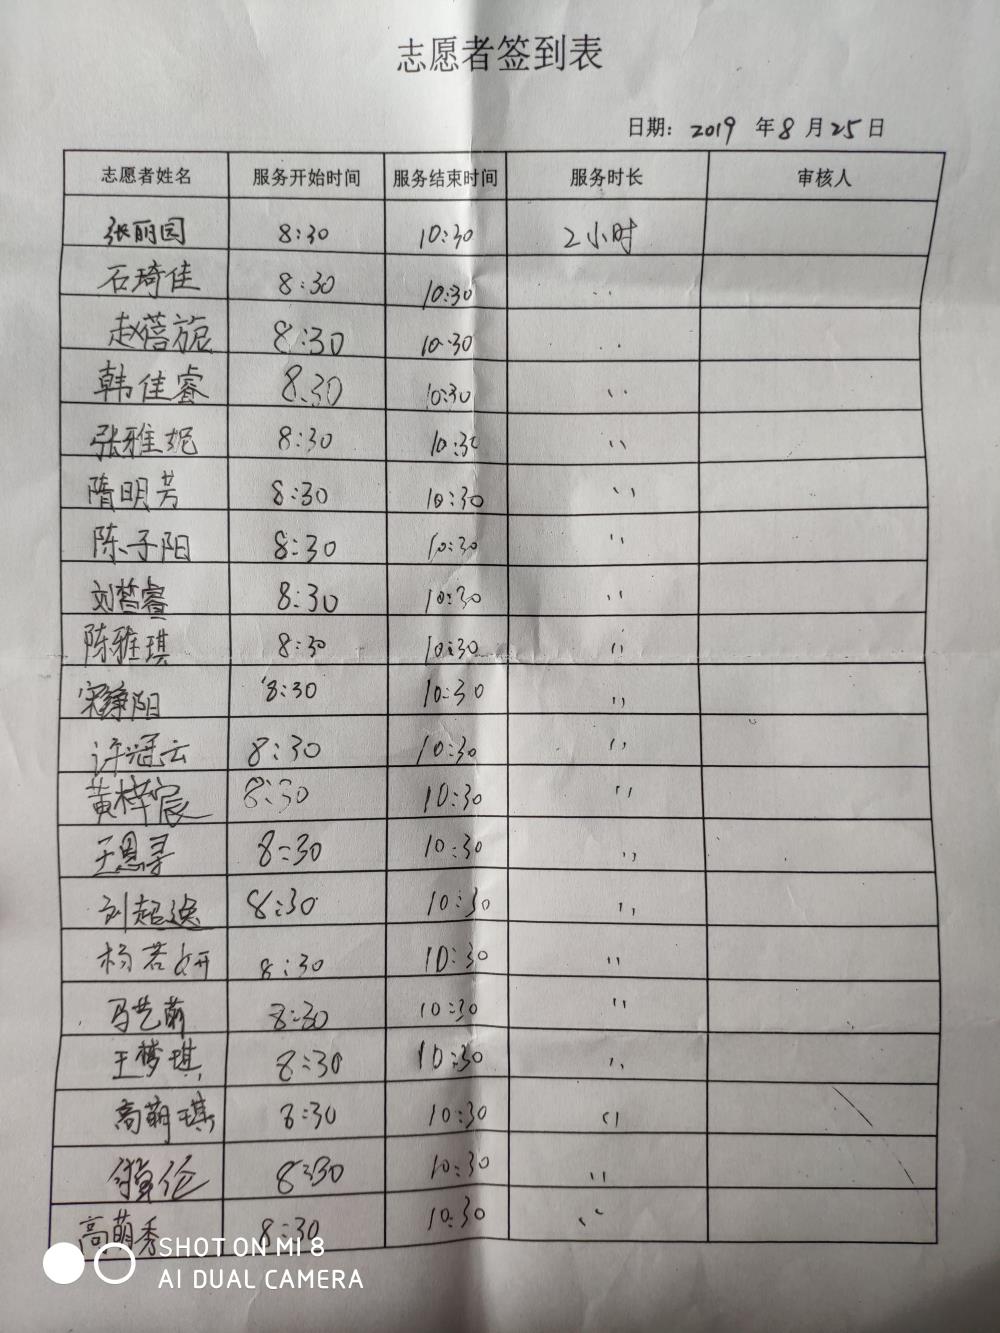 志愿者签到表
日期: 2019 年 8 月 25 日
志愿者姓名 服务开始时间 服务结束时间 服务时长 审核人
张丽园 8:30 10:30 2小时
石琦佳 8:30 10:30 ''
赵蓓旎 8:30 10:30 ''
韩佳睿 8:30 10:30 ''
张雅妮 8:30 10:30 ''
隋明芳 8:30 10:30 ''
陈子阳 8:30 10:30 ''
刘哲睿 8:30 10:30 ''
陈雅琪 8:30 10:30 ''
8:30 10:30 ''
许冠云 8:30 10:30 ''
黄梓宸 8:30 10:30 ''
王恩寻 8:30 10:30 ''
刘超逸 8:30 10:30 ''
杨若妍 8:30 10:30 ''
马艺萌 8:30 10:30 ''
王梦琪 8:30 10:30 ''
高萌琪 8:30 10:30 ''
8:30 10:30 ''
高萌秀 8:30 10:30 ''
SHOT ON MI 8
AI DUAL CAMERA